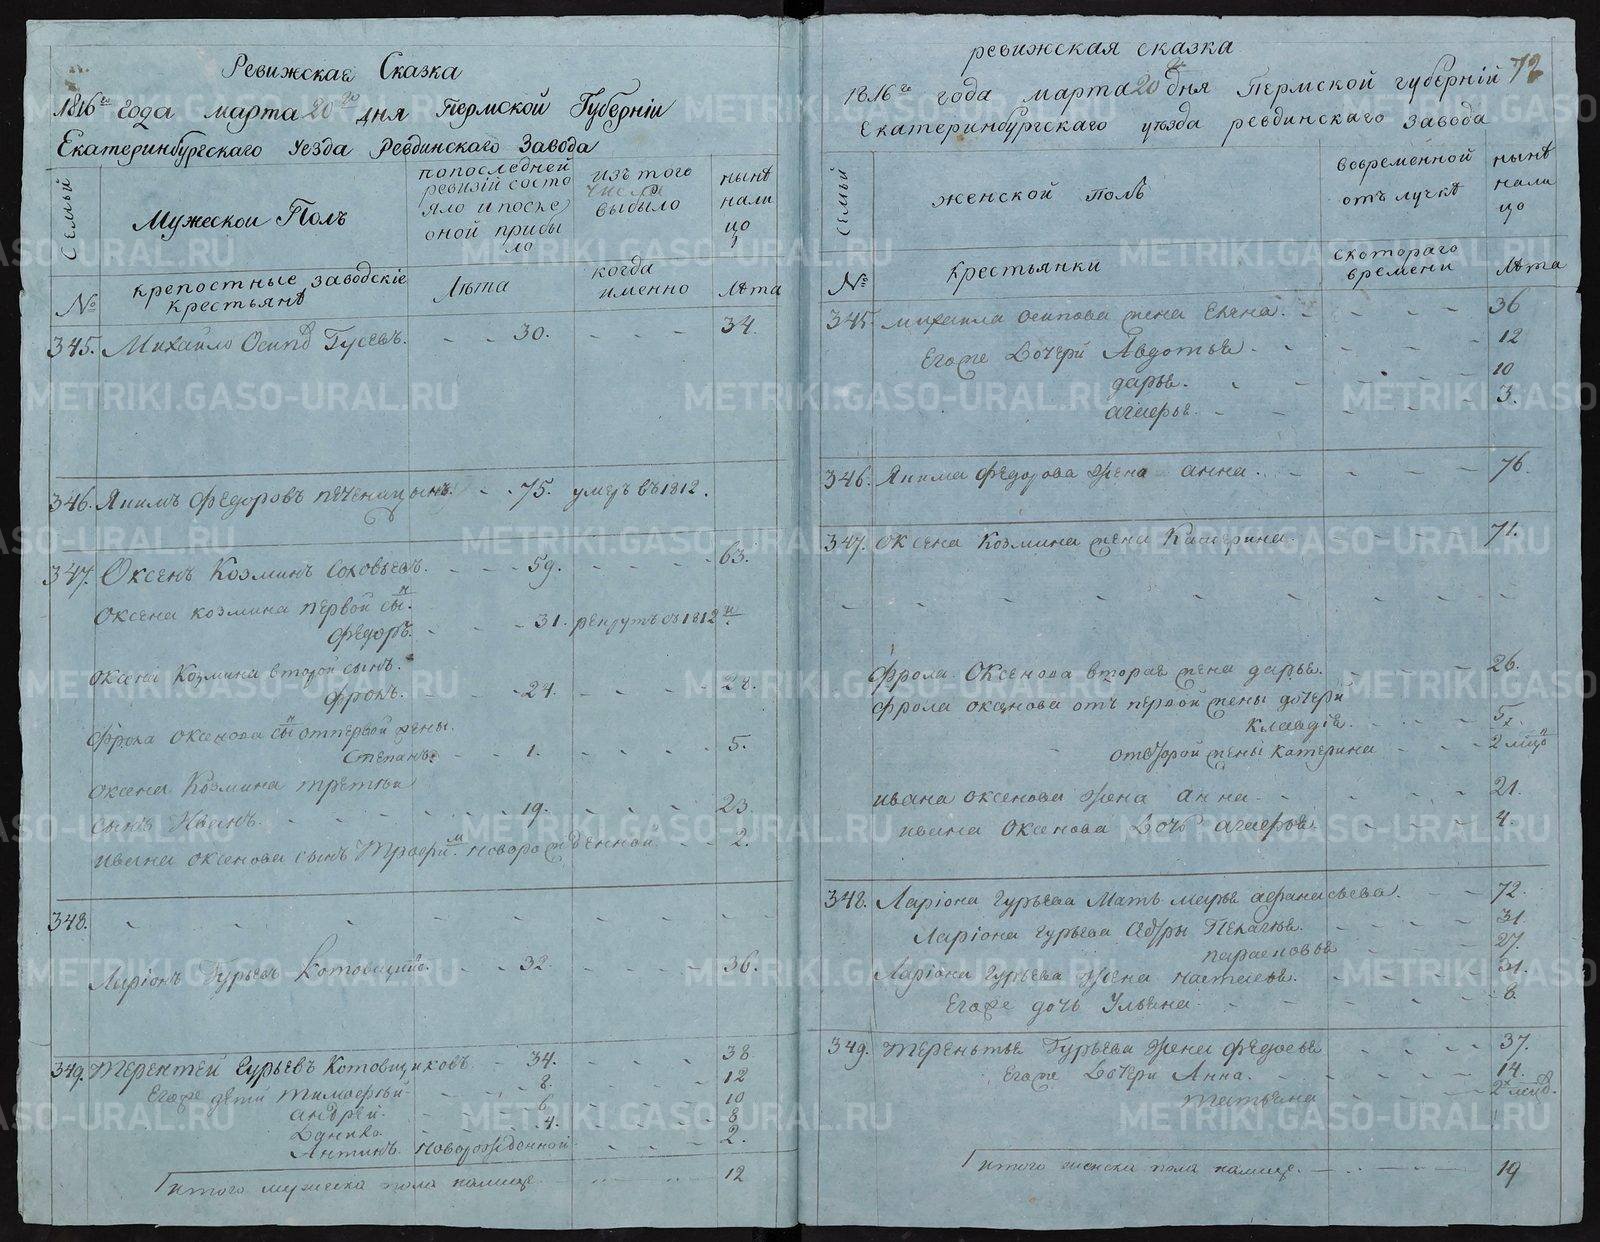 Ревижская Сказка
1816го года марта 20го дня Пермской Губерніи
Екатеринбургскаго Уезда Ревдинскаго Завода
Семьи
Мужескои Полъ
попоследней
ревизіи состо
яло и после
оной прибы
ло
изъ того
числа
выбыло
нынѣ
нали
цо
№
крепостные заводскіе
крестьянѣ
Лѣта
когда
именно
лѣта
345. Михаило Осипов Гусевъ. 30. 34.
346. Якимъ Федоровъ печеницынъ. 75. умеръ въ 1812.
347. Оксенъ Козминъ Соловьевъ. 59. 63.
Оксена козмина первой сын
Федоръ. 31. рекрутъ въ 1812м
Оксена Козмина второй сынъ.
Фролъ. 24. 28.
Фрола Оксенова сын отпервой жены.
Степанъ. 1. 5.
Оксена Козмина третьи
сынъ Иванъ. 19. 23.
ивана оксенова сынъ новорожденной 2.
348.
Ларіонъ Гурьевъ 32. 36.
349. Терентеи Гурьевъ Котовщиковъ 34. 38
Егоже дети тимофеи 8. 12
андрей. 6. 10
Данило. 4. 8
Антипъ. новорожденной 2.
итого мужеска пола налице. 12
ревижская сказка
72
1816го года марта 20го дня Пермской губерніи
Екатеринбургскаго уѣзда ревдинскаго завода
Семьи
женской полъ
вовременной
отълучкѣ
нынѣ
нали
цо
№
Крестьянки
скотораго
времени
лѣта
345. михаила осипова жена 36
Егоже Дочери Авдотья 12
дарья. 10
агаферья. 3.
346. Якима Федорова жена анна. 76.
347. Оксена Козмина жена Катерина. 71.
Фрола Оксенова вторая жена дарья. 26.
фрола оксенова отъ первой жены дочери
Клавдія. 5.
отвторой жены катерина 2 мѣсяц
ивана оксенова жена анна 21.
ивана Оксенова Дочь агаферья 4.
348. Ларіона гурьева Мать марья афанасьева. 72.
Ларіона гурьева Пелагья. 31.
парасковья 27.
Ларіона Гурьева жена настасья. 31.
Егоже дочь Ульяна 8
349. Терентья Гурьева жена федосья 37.
Егоже Дочери Анна. 14.
татьяна
итого женска пола налице. 19
METRIKI.GASO-URAL.RU